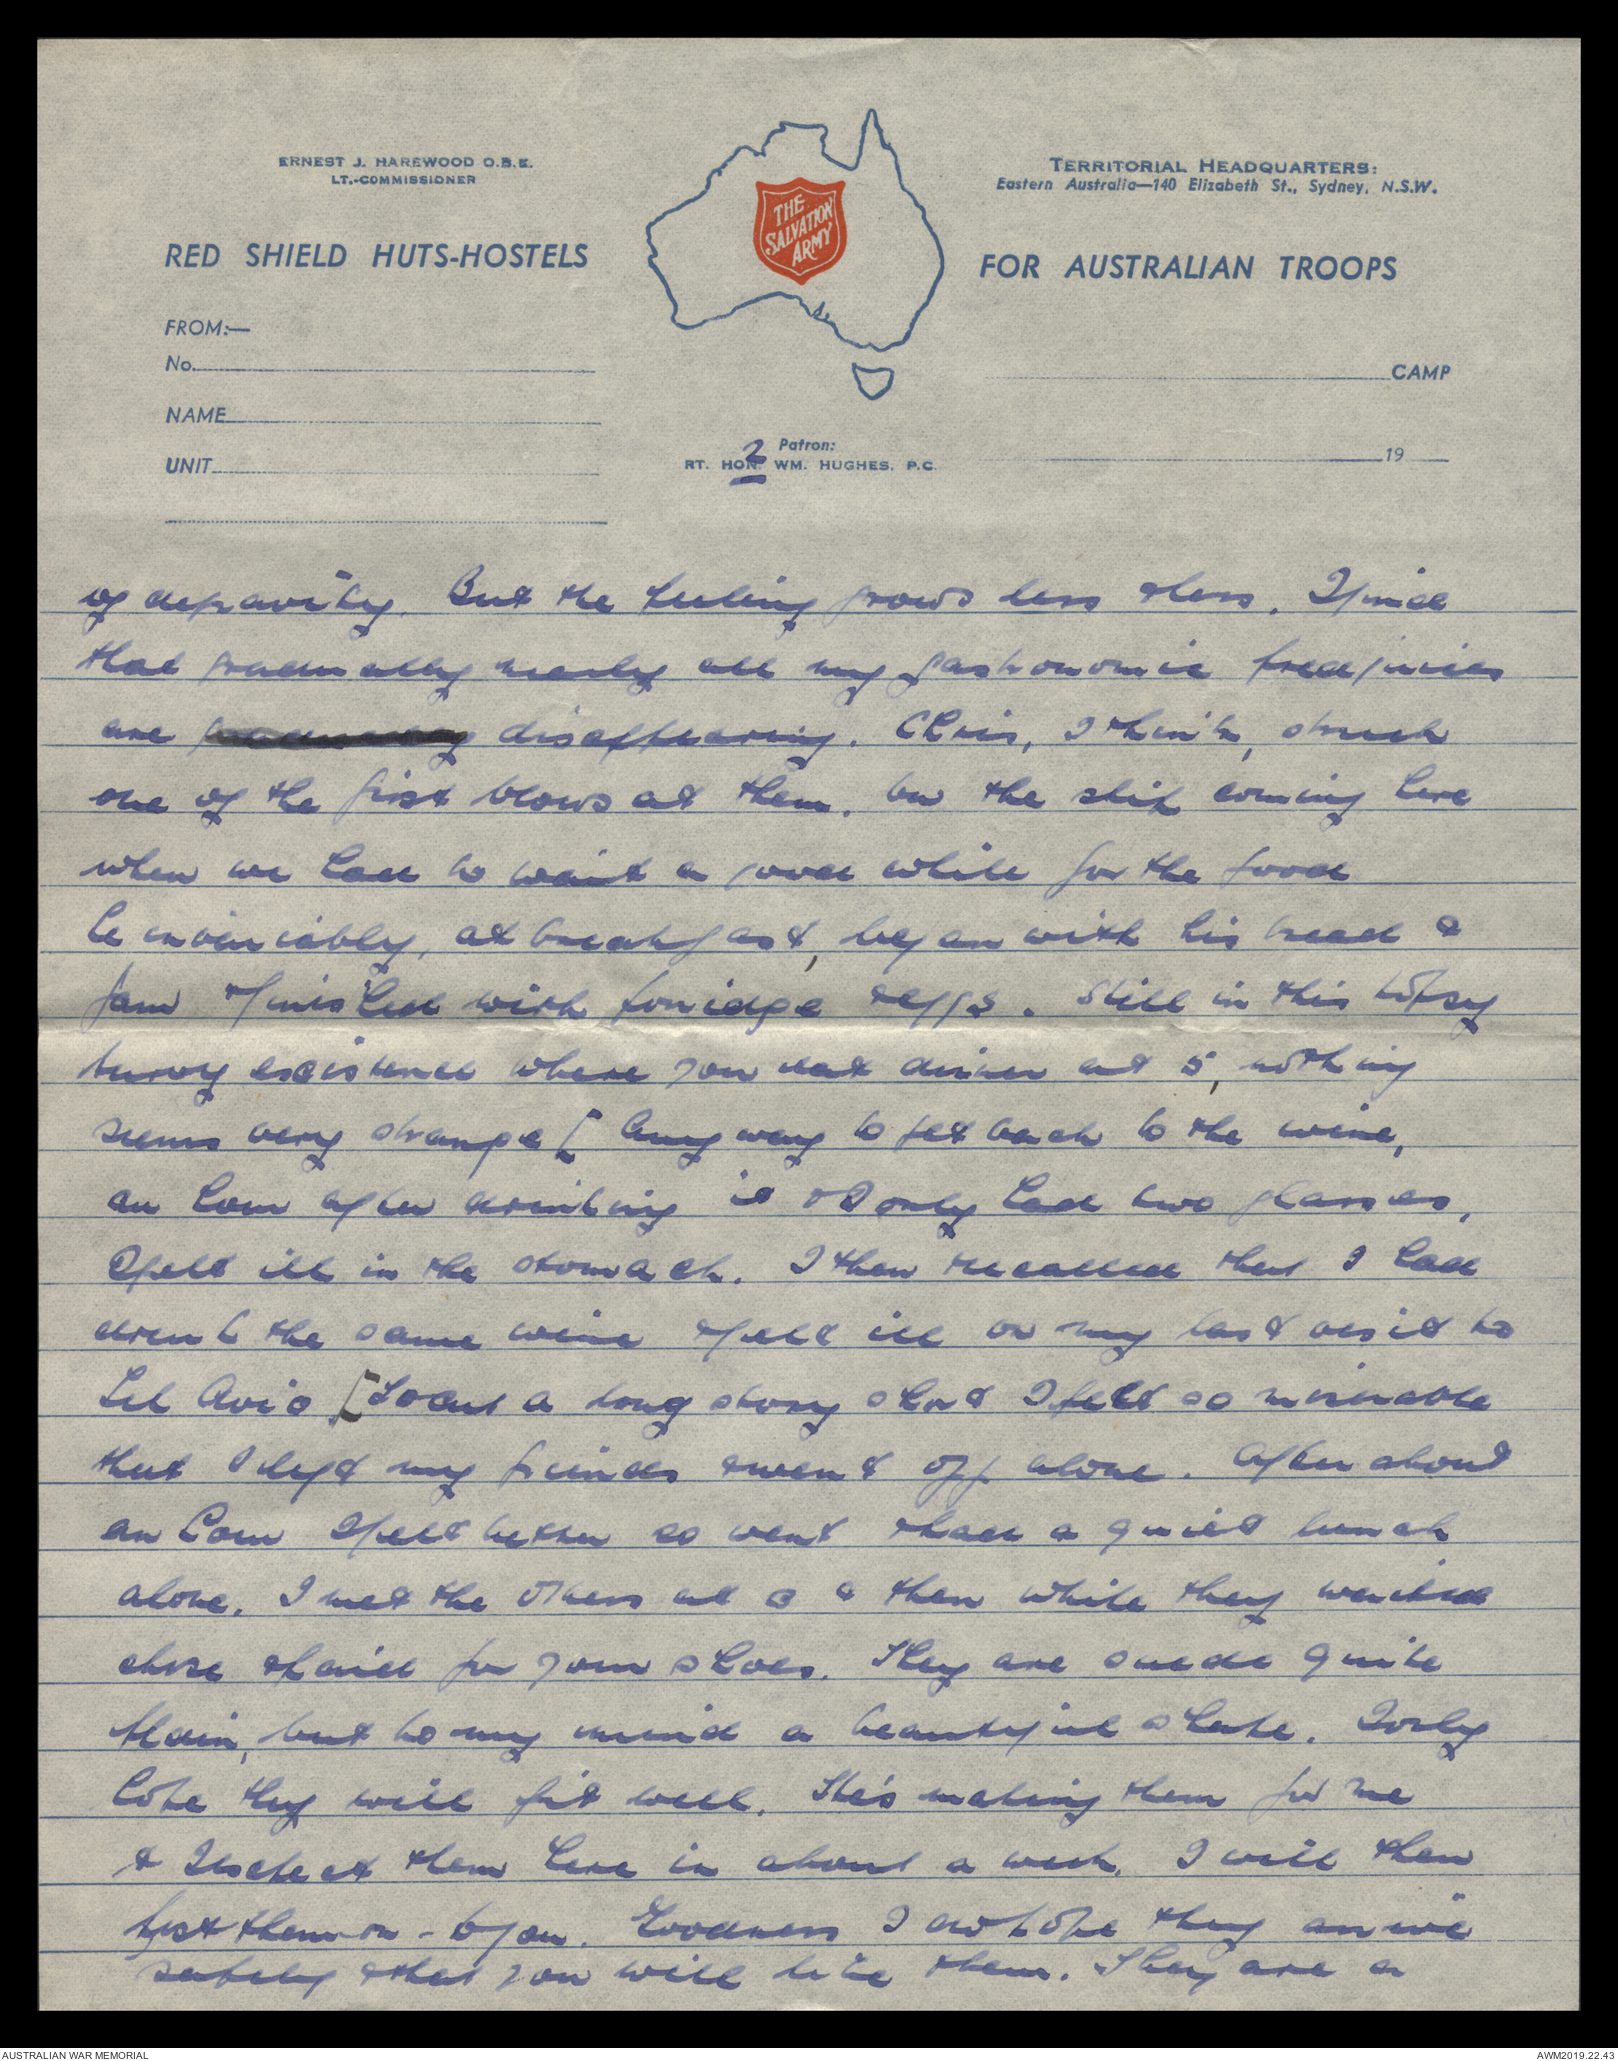 ERNEST J. HAREWOOD O.B.E.
LT.-COMMISSIONER
TERRITORIAL HEADQUARTERS:
Eastern Australia—140 Elizabeth St., Sydney, N.S.W.
THE
SALVATION
ARMY
RED SHIELD HUTS-HOSTELS
FOR AUSTRALIAN TROOPS
FROM:—
No.
CAMP
NAME
Patron:
RT. HON. WM. HUGHES, P.C.
2
UNIT
19
of depravity. But the feeling grows less & less. I find
that gradually nearly all my gastronomic predjuices
are disappearing. Chris, I think, struck
one of the first blows at them. On the ship coming here
when we had to wait a good while for the food
he invariably, at breakfast, began with his bread &
jam & finished with porridge & eggs. Still in this topsy
turvy existence where you eat dinner at 5, nothing
seems very strange [ Anyway to get back to the wine,
an hour after drinking it & I only had two glasses,
I felt ill in the stomach. I then recalled that I had
drunk the same wine & felt ill on my last visit to
Tel Aviv [ To cut a long story short I felt so miserable
that I left my friends & went off alone. After about
an hour I felt better so went & had a quiet lunch
alone. I met the others at 3 & then while they waited
chose & paid for your shoes. They are suede quite
plain, but to my mind a beautiful shape. I only
hope they will fit well. He's making them for me
& I expect them here in about a week. I will then
post them on - to you. Goodness I do hope they arrive
safely & that you will like them. They are a
AUSTRALIAN WAR MEMORIAL
AWM2019.22.43